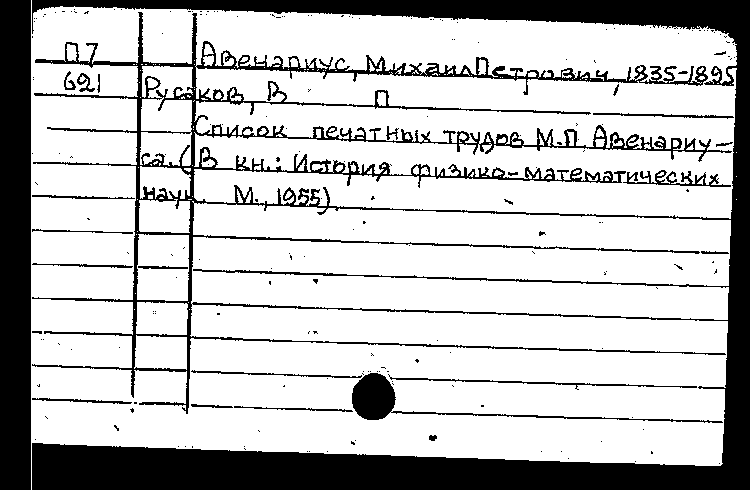 П7 Авенариус, Михаил Петрович, 1835-1895
621 Русаков, В П
Список печатных трудов М.П. Авенариу-
са. (В кн.: История физико-математических
наук. М., 1955).